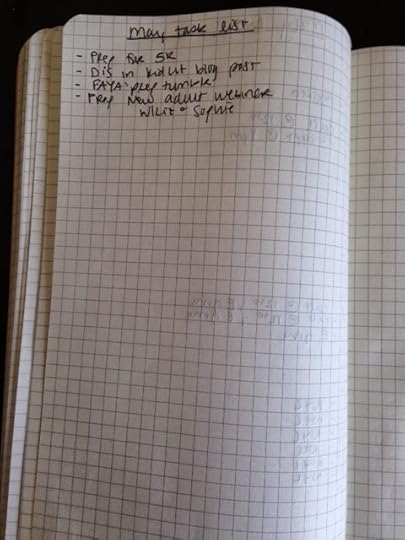 May task list
- Prep for 5K
- Dis in kidlit blog post
- FAYA: prep tumblr
- Prep New adult webinar
w/Liz & Sophie